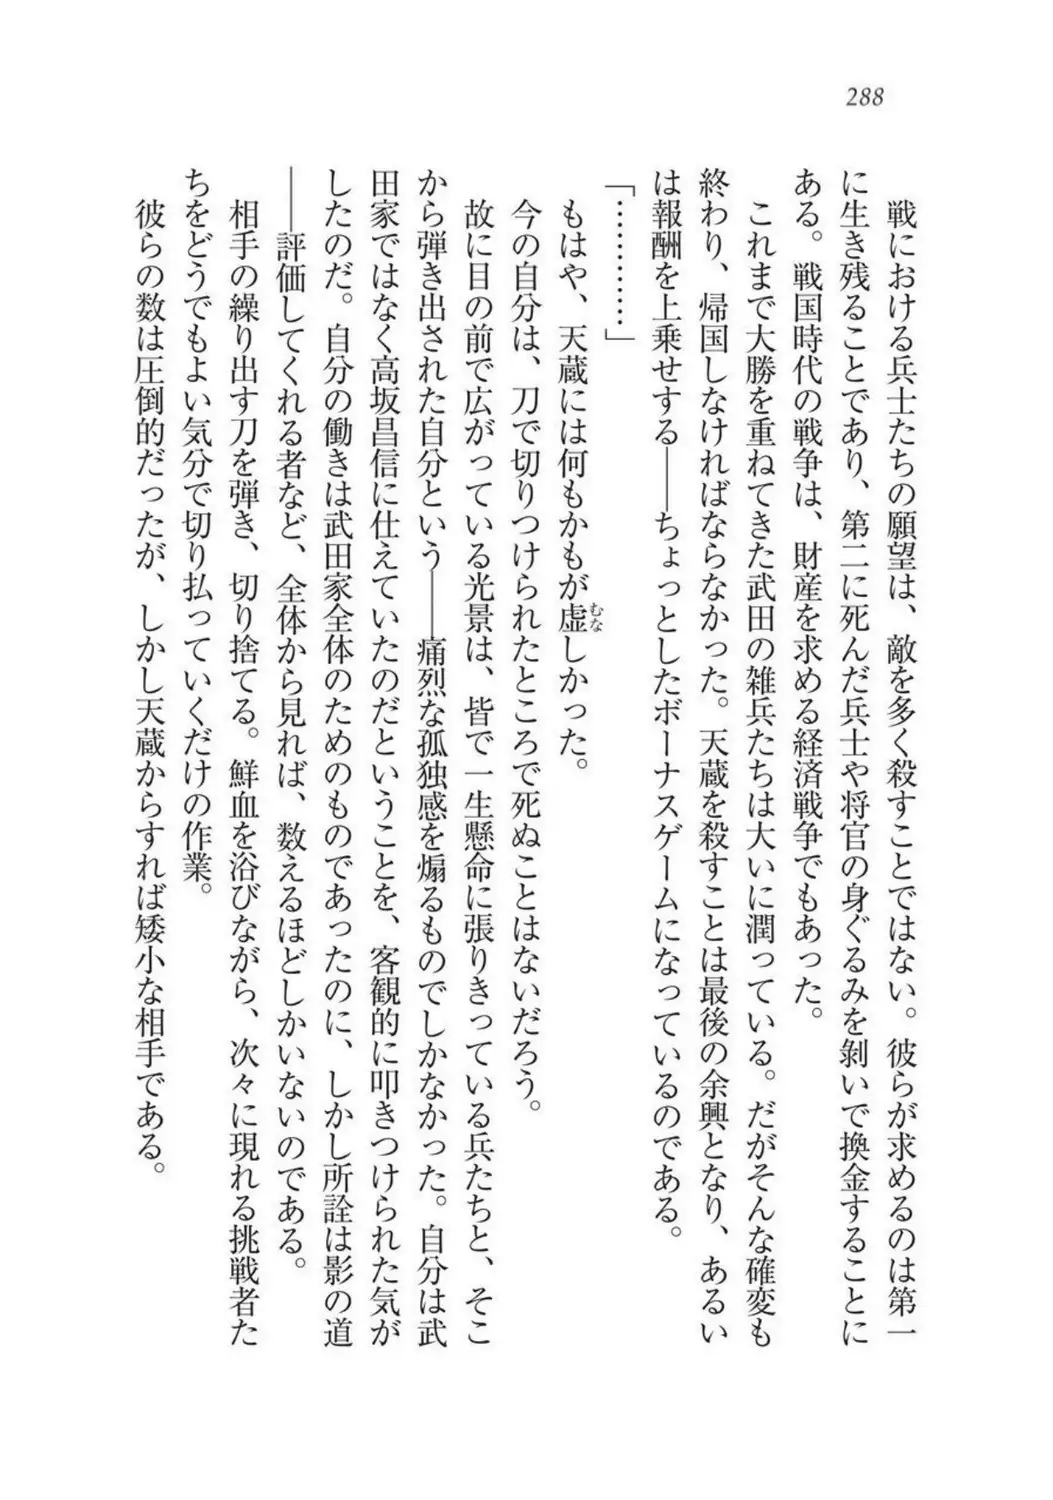 288
戦における兵士たちの願望は、敵を多く殺すことではない。彼らが求めるのは第一
に生き残ることであり、第二に死んだ兵士や将官の身ぐるみを剝いで換金することに
ある。戦国時代の戦争は、財産を求める経済戦争でもあった。
これまで大勝を重ねてきた武田の雑兵たちは大いに潤っている。だがそんな確変も
終わり、帰国しなければならなかった。天蔵を殺すことは最後の余興となり、あるい
は報酬を上乗せする――ちょっとしたボーナスゲームになっているのである。
「…………」
もはや、天蔵には何もかもが虚むなしかった。
今の自分は、刀で切りつけられたところで死ぬことはないだろう。
故に目の前で広がっている光景は、皆で一生懸命に張りきっている兵たちと、そこ
から弾き出された自分という――痛烈な孤独感を煽るものでしかなかった。自分は武
田家ではなく高坂昌信に仕えていたのだということを、客観的に叩きつけられた気が
したのだ。自分の働きは武田家全体のためのものであったのに、しかし所詮は影の道
――評価してくれる者など、全体から見れば、数えるほどしかいないのである。
相手の繰り出す刀を弾き、切り捨てる。鮮血を浴びながら、次々に現れる挑戦者た
ちをどうでもよい気分で切り払っていくだけの作業。
彼らの数は圧倒的だったが、しかし天蔵からすれば矮小な相手である。